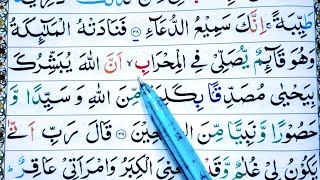 طَيِّبَةً ۚ اِنَّكَ سَمِيْعُ الدُّعَآءِ فَنَادَتْهُ الْمَلٰٓئِكَةُ
وَهُوَ قَآئِمٌ يُّصَلِّيْ فِي الْمِحْرَابِ ۙ اَنَّ اللّٰهَ يُبَشِّرُكَ
بِيَحْيٰى مُصَدِّقًۢا بِكَلِمَةٍ مِّنَ اللّٰهِ وَ سَيِّدًا وَّ
حَصُوْرًا وَّ نَبِيًّا مِّنَ الصّٰلِحِيْنَ قَالَ رَبِّ اَنّٰى
يَكُوْنُ لِيْ غُلٰمٌ وَّقَدْ بَلَغَنِيَ الْكِبَرُ وَامْرَاَتِيْ عَاقِرٌ ؕ